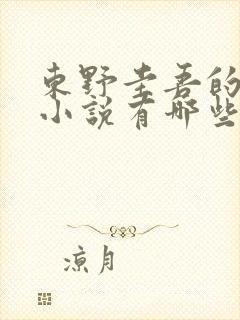 東野圭吾的
小說有哪些
涼月